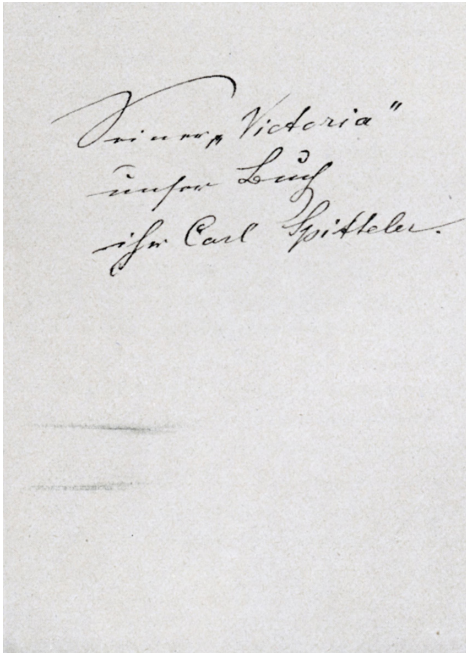 Seiner „Victoria"
unser Buch
ihr Carl Spitteler.